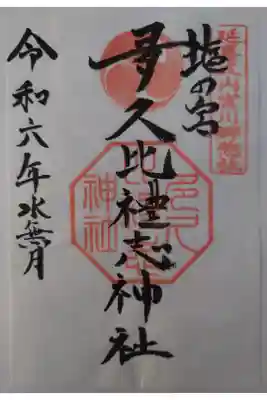 塩の宮
夛久比禮志神社
令和六年水無月
神社